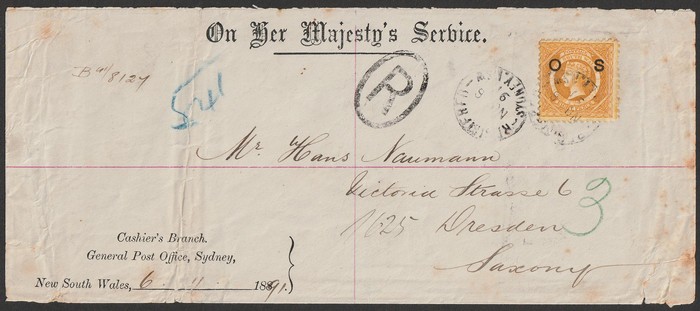 On Her Majesty's Service.
O S
R
Mr. Hans Naumann
Victoria Strasse 6
3
1625 Dresden
Saxony
Cashier's Branch.
General Post Office, Sydney,
New South Wales, 6. 11. 1891.